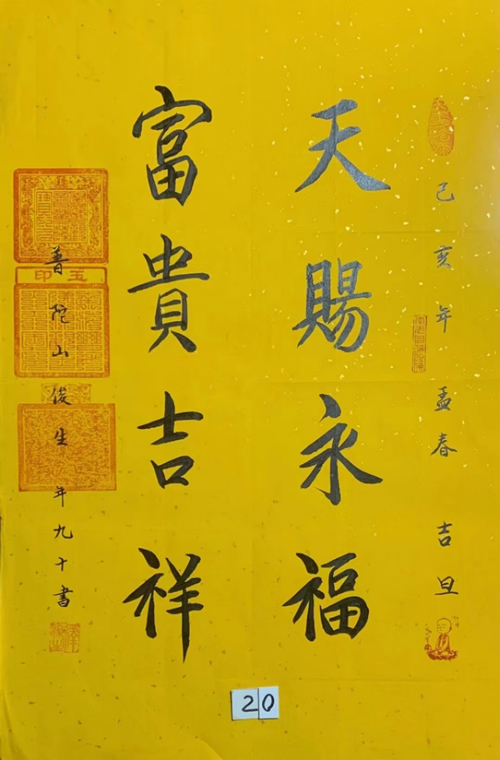 己亥年孟春 吉旦
天賜永福
富貴吉祥
普陀山俊生 年九十書
玉印
20